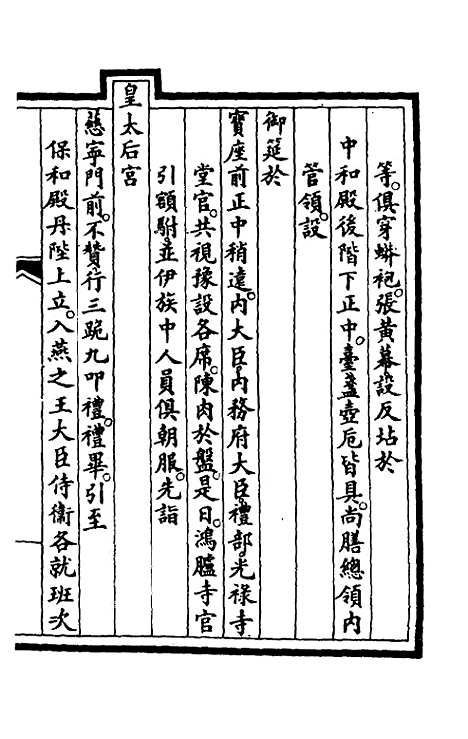 等。俱穿蟒袍。張黄幕設反坫於
中和殿後階下正中。臺盞壺卮皆具。尚膳總領内
管領。設
御筵於
寳座前正中稍遠。内大臣。内務府大臣。禮部。光祿寺
堂官。共視豫設各席。陳肉於盤。是日。鴻臚寺官
引額駙。並伊族中人員俱朝服。先詣
皇太后宫
慈寧門前。不贊行三跪九叩禮。禮畢。引至
保和殿丹陛上立。入燕之王大臣侍衞各就班次